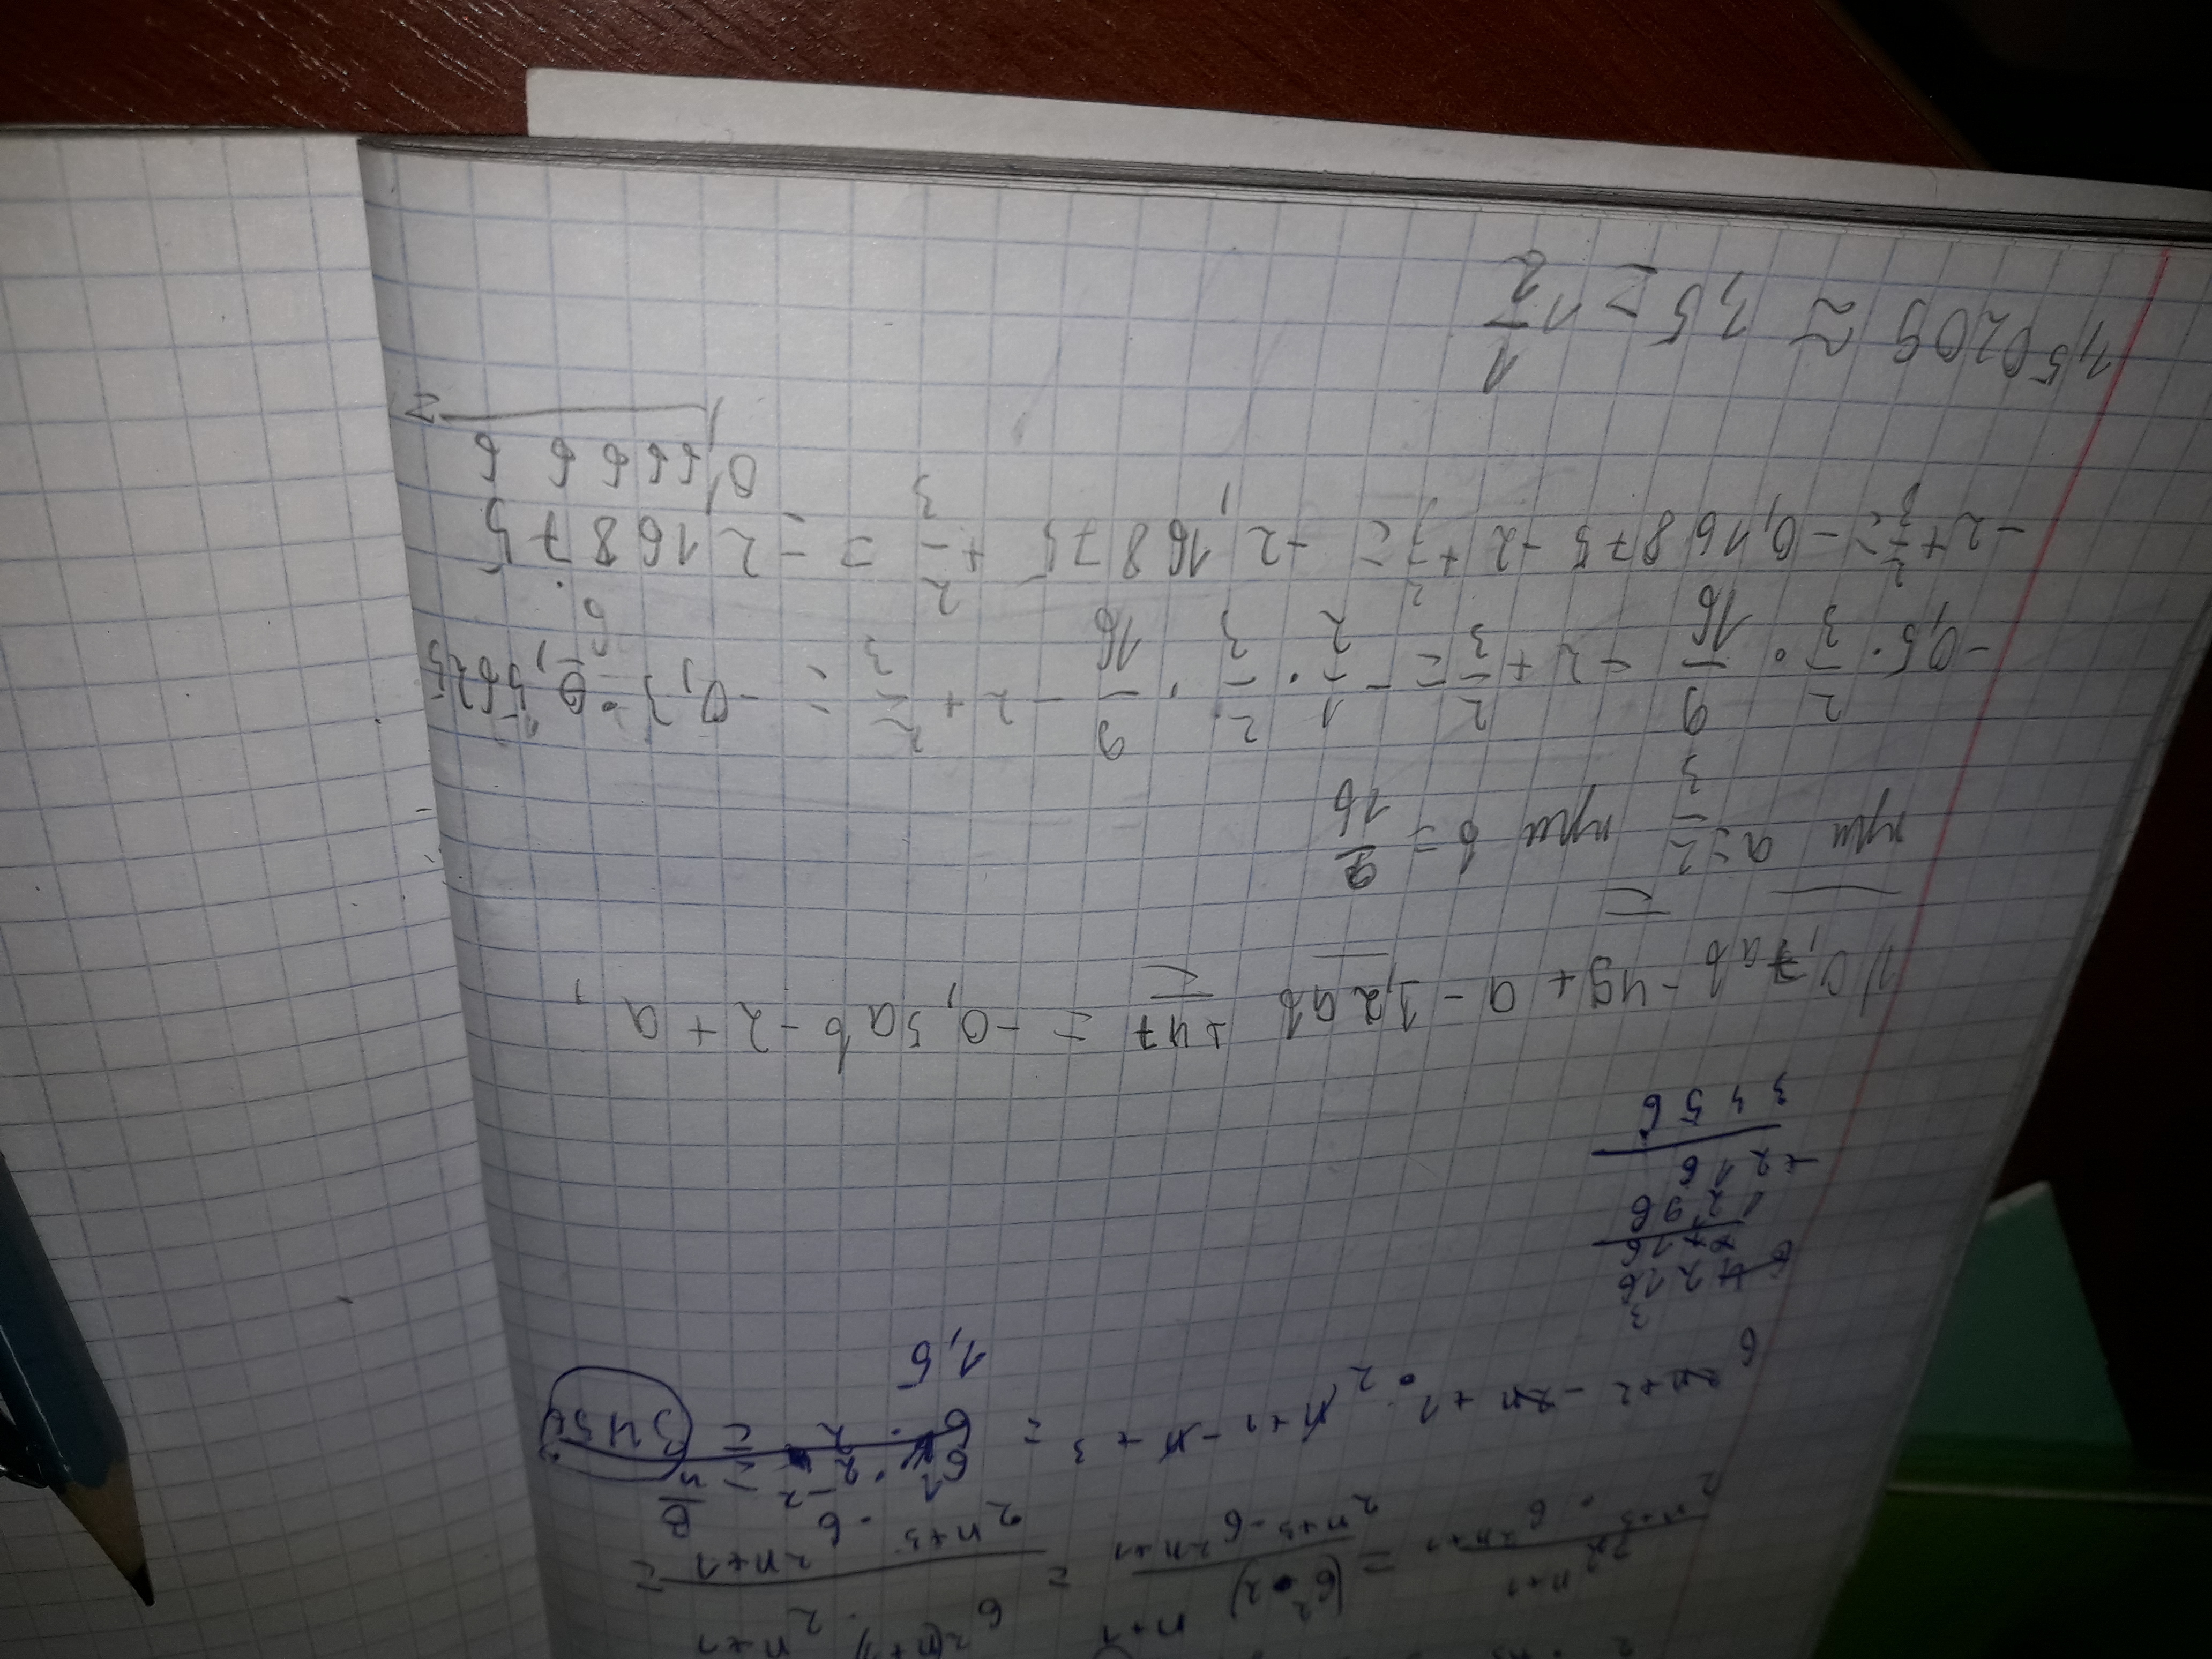 72ⁿ⁺¹ / 2ⁿ⁺³ · 6²ⁿ⁺¹ = (6² · 2)ⁿ⁺¹ / 2ⁿ⁺³ · 6²ⁿ⁺¹ = 6²⁽ⁿ⁺¹⁾ · 2ⁿ⁺¹ / 2ⁿ⁺³ · 6²ⁿ⁺¹ =
6²ⁿ⁺²⁻²ⁿ⁺¹ · 2ⁿ⁺¹⁻ⁿ⁺³ = 6¹ · 2⁻² = 6/4
6 · 2 = 3456
1,5
3
216
216
1296
+216
3456
1) 0,7ab - 49 + a - 1,2ab + 47 = -0,5ab - 2 + a,
при a = 2/3 при b = 9/16
-0,5 · 2/3 · 9/16 - 2 + 2/3 = -1/2 · 2/3 · 9/16 - 2 + 2/3 = -0,3 · 0,5625
-2 + 2/3 = -0,16875 - 2 + 2/3 = -2,16875 + 2/3 = -2,16875
0,66666
1,50209 ≈ 1,5 = 1 1/2